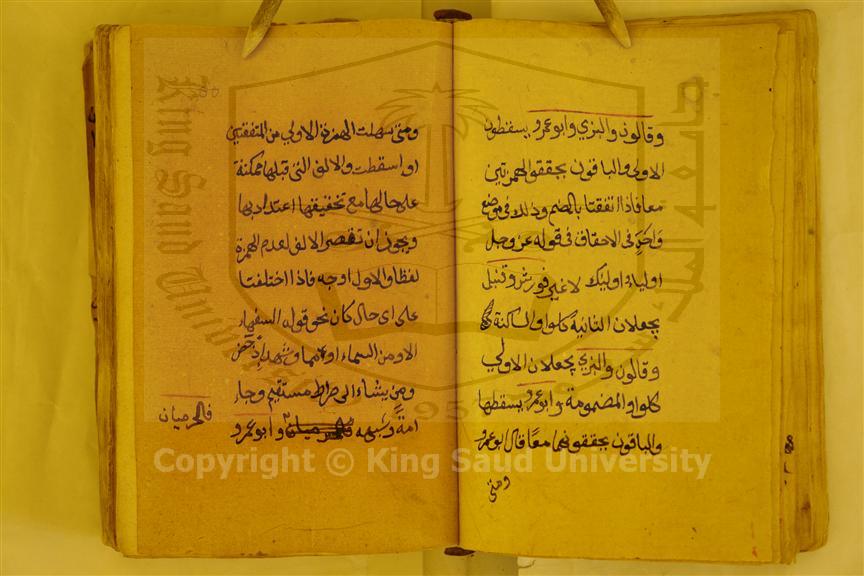 وقالون والبزي وابو عمرو يسقطون
الاولى والباقون يحققو الهمزتين
معا فاذا اتفقتا بالضم وذلك في موضع
واحد في الاحقاف في قوله عز وجل
اولياء اوليك لا غير فورش وقنبل
يجعلان الثانية كالواو الساكنة
وقالون والبزي يجعلان الاولي
كالواو المضمومة وابو عمرو يسقطها
والباقون يحققونهما معا قال ابو عمرو
ومتى
ومتى سهلت الهمزة الاولي من المتفقتين
او اسقطت والالف التي قبلها ممكنة
على حالها مع تخفيفها اعتدادا بها
ويجوز ان تقصر الالف لعدم الهمزة
لفظا والاول اوجه فاذا اختلفتا
على اى حال كان نحو قوله السفهاء
الا ومن السماء او ائتنا وشهداء اذ حضر
ومن يشاء الى صراط مستقيم وجاء
امة وشبهه وابو عمرو
فالحرميان
King Saud University
جامعة الملك سعود
1957
Copyright © King Saud University